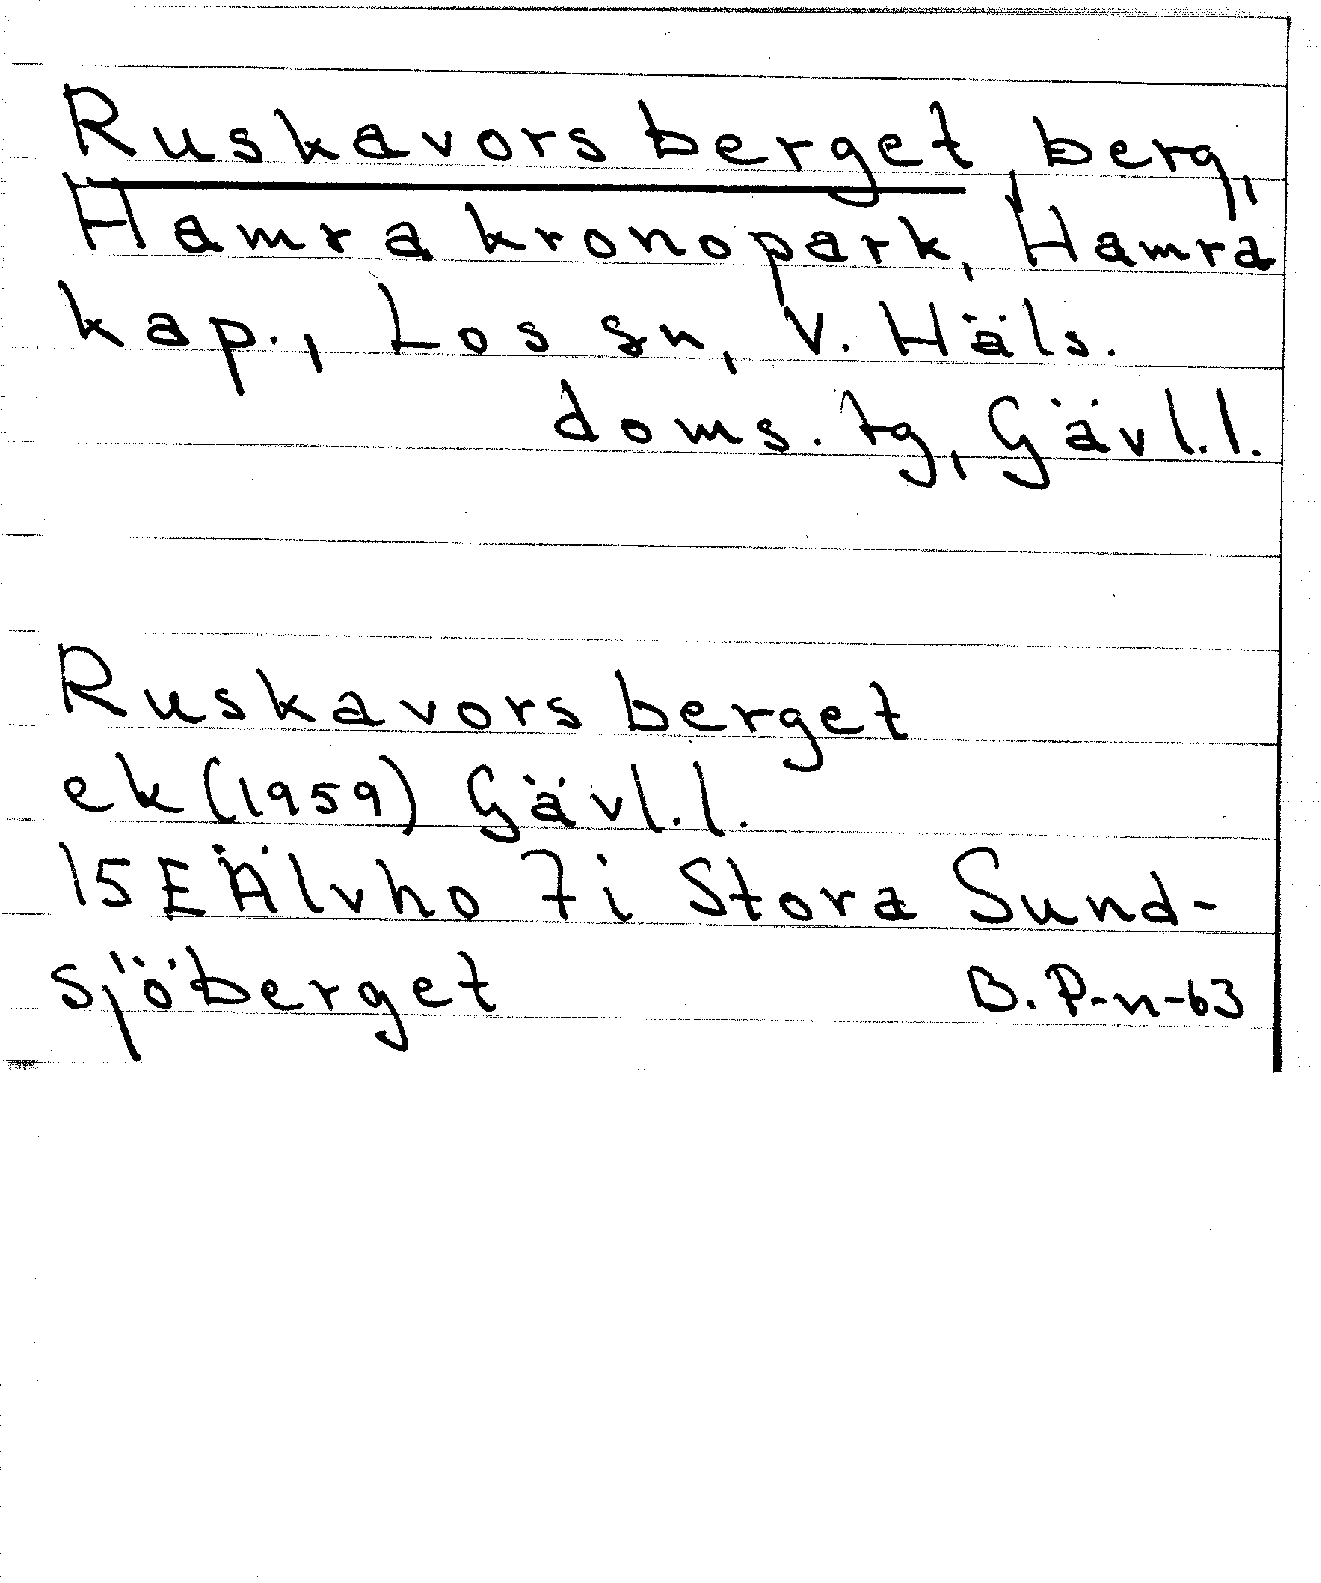 Ruskavorsberget berg,
Hamra kronopark, Hamra
kap., Los sn, V. Häls.
doms. tg, Gävl.l.
Ruskavorsberget
ek (1959) Gävl.l.
15E Älvho 7i Stora Sund-
sjöberget B. P-n-63